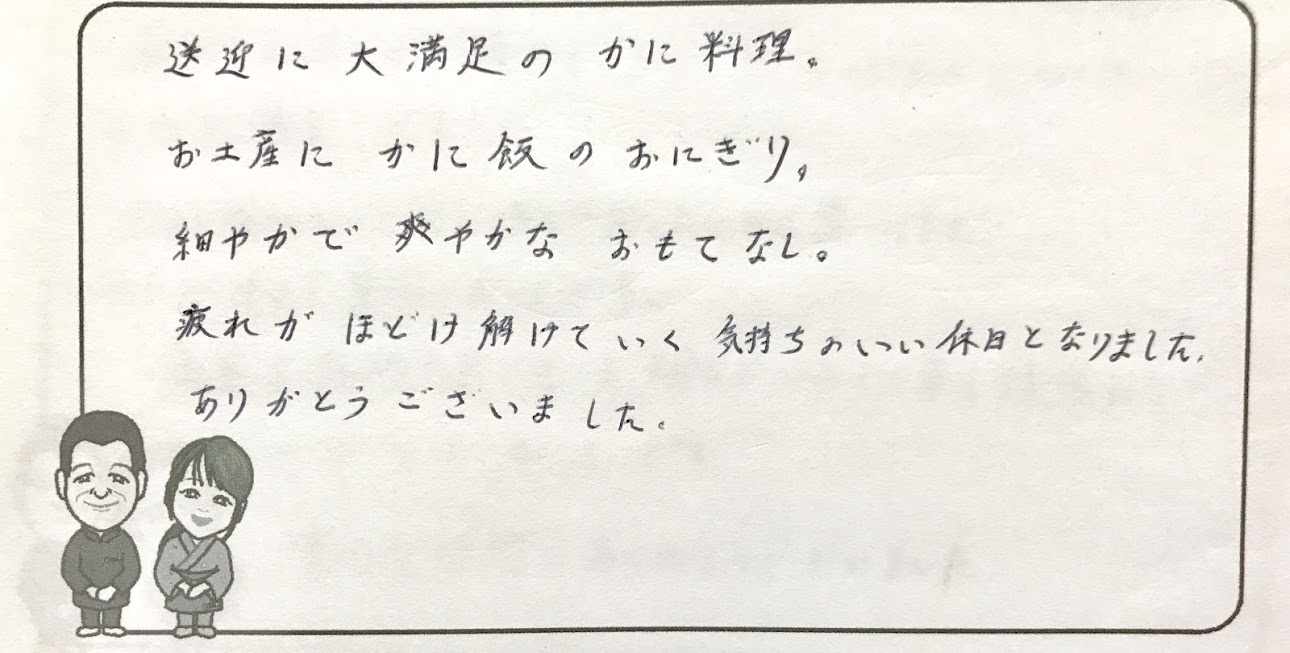 送迎に 大満足の かに料理。
お土産に かに飯の おにぎり。
細やかで 爽やかな おもてなし。
疲れが ほどけ解けていく 気持ちのいい休日となりました。
ありがとうございました。